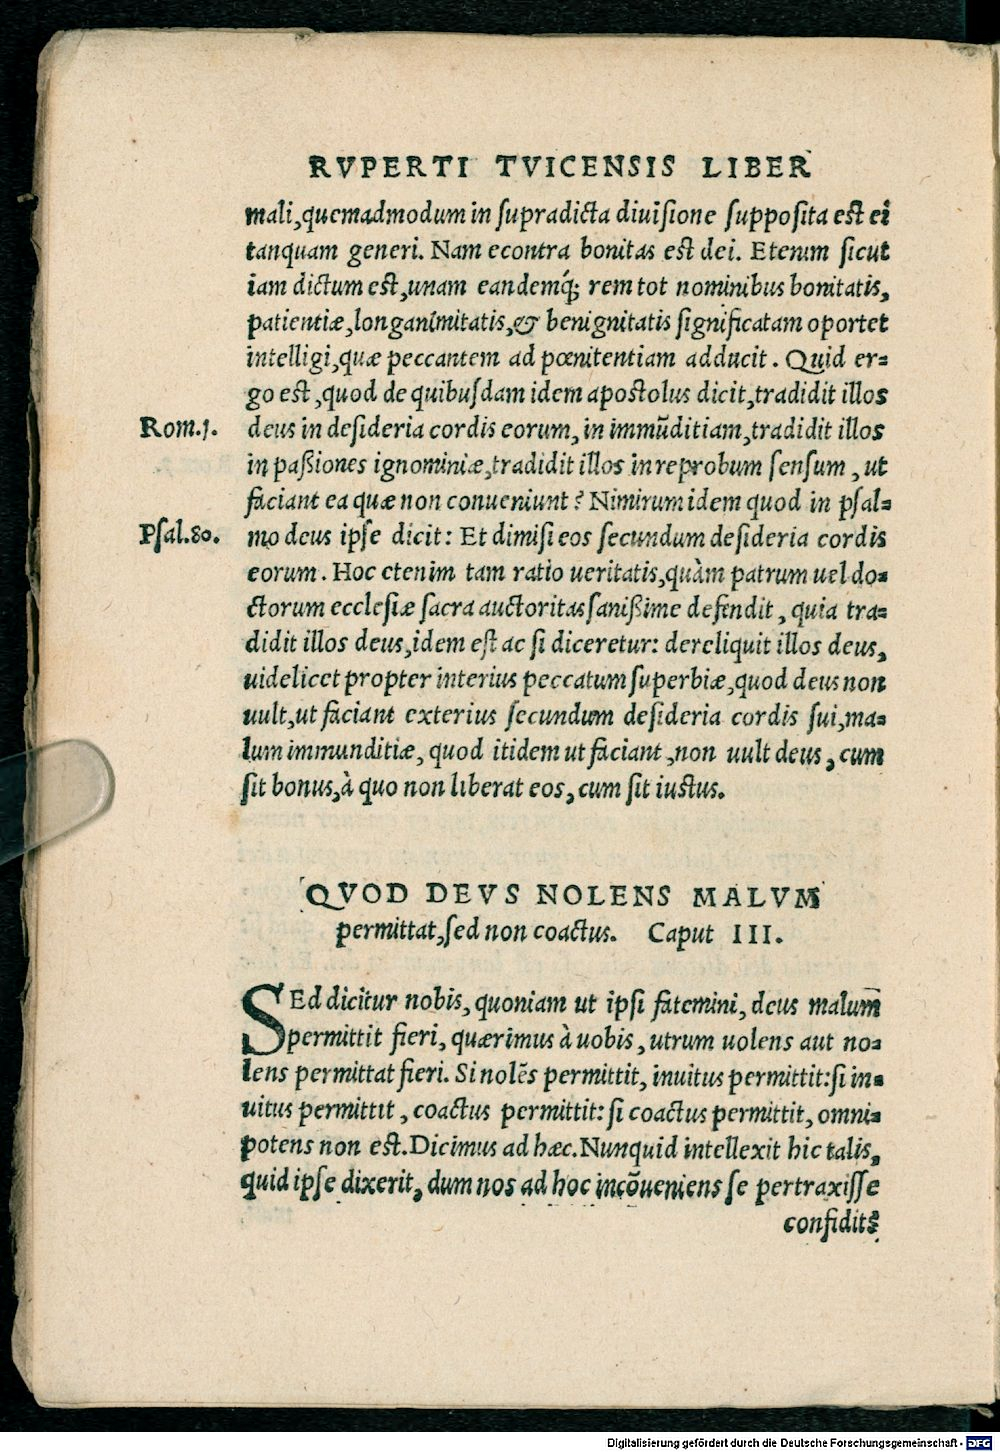 RVPERTI TVICENSIS LIBER
mali, quemadmodum in ſupradicta diuiſione ſuppoſita est ei
tanquam generi. Nam econtra bonitas est dei. Etenim ſicut
iam dictum est, unam eandemq́; rem tot nominibus bonitatis,
patientiæ, longanimitatis, & benignitatis ſignificatam oportet
intelligi, quæ peccantem ad pœnitentiam adducit. Quid er-
go est, quod de quibuſdam idem apostolus dicit, tradidit illos
Rom.1.
deus in deſideria cordis eorum, in immūditiam, tradidit illos
in paßiones ignominiæ, tradidit illos in reprobum ſenſum, ut
faciant ea quæ non conueniunt? Nimirum idem quod in pſal-
Pſal.80.
mo deus ipſe dicit: Et dimiſi eos ſecundum deſideria cordis
eorum. Hoc etenim tam ratio ueritatis, quàm patrum uel do-
ctorum eccleſiæ ſacra auctoritas ſanißime defendit, quia tra-
didit illos deus, idem est ac ſi diceretur: dereliquit illos deus,
uidelicet propter interius peccatum ſuperbiæ, quod deus non
uult, ut faciant exterius ſecundum deſideria cordis ſui, ma-
lum immunditiæ, quod itidem ut faciant, non uult deus, cum
ſit bonus, à quo non liberat eos, cum ſit iustus.
QVOD DEVS NOLENS MALVM
permittat, ſed non coactus. Caput III.
SEd dicitur nobis, quoniam ut ipſi fatemini, deus malum
permittit fieri, quærimus à uobis, utrum uolens aut no-
lens permittat fieri. Si nolēs permittit, inuitus permittit: ſi in-
uitus permittit, coactus permittit: ſi coactus permittit, omni-
potens non est. Dicimus ad hæc. Nunquid intellexit hic talis,
quid ipſe dixerit, dum nos ad hoc incōueniens ſe pertraxiſſe
confidit?
Digitalisierung gefördert durch die Deutsche Forschungsgemeinschaft - DFG